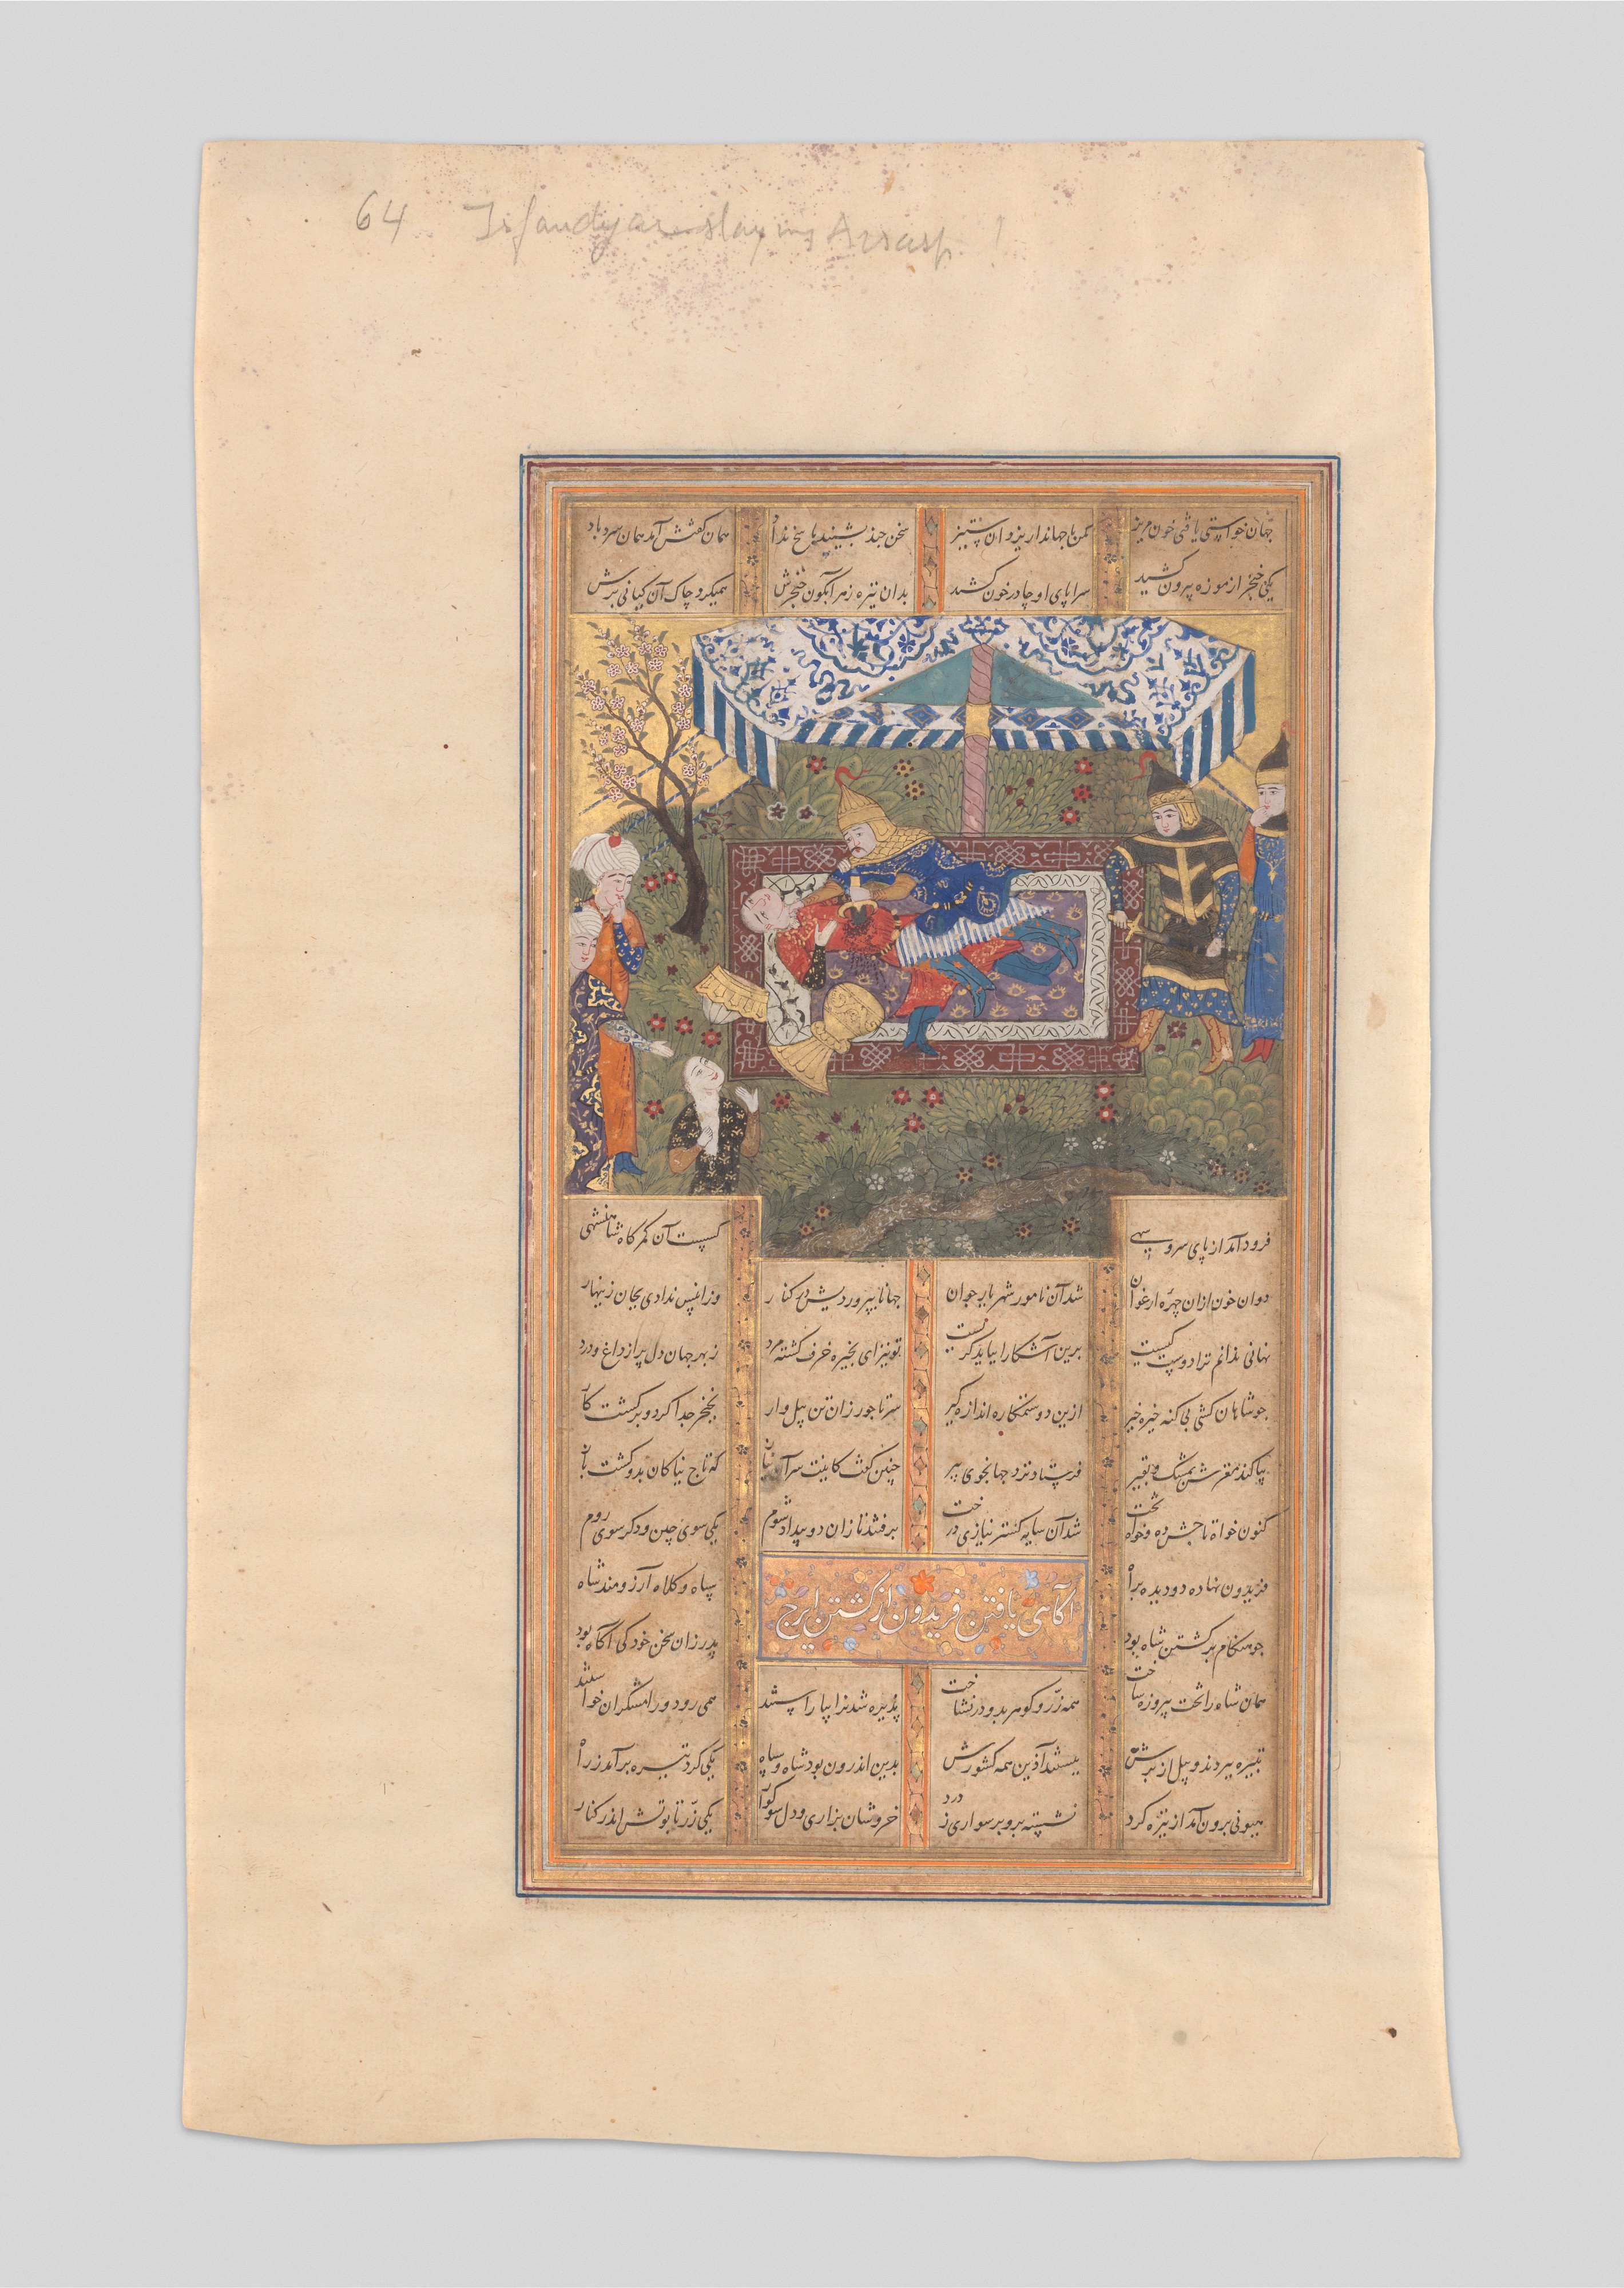 64 Isfandyar slaying Arsasp
جهان خواستی یافتی خون مریز مکن با جهاندار یزدان ستیز سخن چند بشنید پاسخ نداد همان گفتش آمد همان سرد باد
یکی خنجر از موزه بیرون کشید سراپای او چادر خون کشید بدان تیزه زهر آبگون خنجرش همیکرد چاک آن کیانی برش
فرود آمد از پای سرو سهی گسست آن کمرگاه شاهنشهی
دوان خون ازان چهره ارغوان شد آن نامور شهریار جوان جهانا بپروردیش در کنار وزانپس ندادی بجان زینهار
نهانی ندانم ترا دوست کیست برین آشکارا بباید گریست تو نیز ای بخیره خرف گشته مرد ز بهر جهان دل پر از داغ و درد
چو شاهان کشی بی گنه خیره خیر ازین دو ستمکاره اندازه گیر سر تاجور زان تن پیل وار بخنجر جدا کرد و برگشت کار
بیاکند مغزش بمشک و عبیر فرستاد نزد جهانجوی پیر چنین گفت کاینت سر آن نیاز که تاج نیاکان بدو گشت باز
کنون خواه تاجش ده و خواه تخت شد آن سایه گستر نیازی درخت برفتند نازان دو بیداد شوم یکی سوی چین و دگر سوی روم
فریدون نهاده دو دیده براه سپاه و کلاه آرزومند شاه
آگاهی یافتن فریدون از کشتن ایرج
چو هنگام برگشتن شاه بود پدر زان سخن خود کی آگاه بود
همان شاه را تخت پیروزه ساخت همه زر و گوهر بدو درنشاخت پذیره شدن را بیاراستند همی رود و رامشگران خواستند
تبیره ببردند و پیل از برش ببستند آذین همه کشورش بدین اندرون بود شاه و سپاه یکی گرد تیره برآمد ز راه
هیونی برون آمد از تیره گرد نشسته برو بر سواری ز درد خروشان بزاری و دل سوگوار یکی زر تابوتش اندر کنار